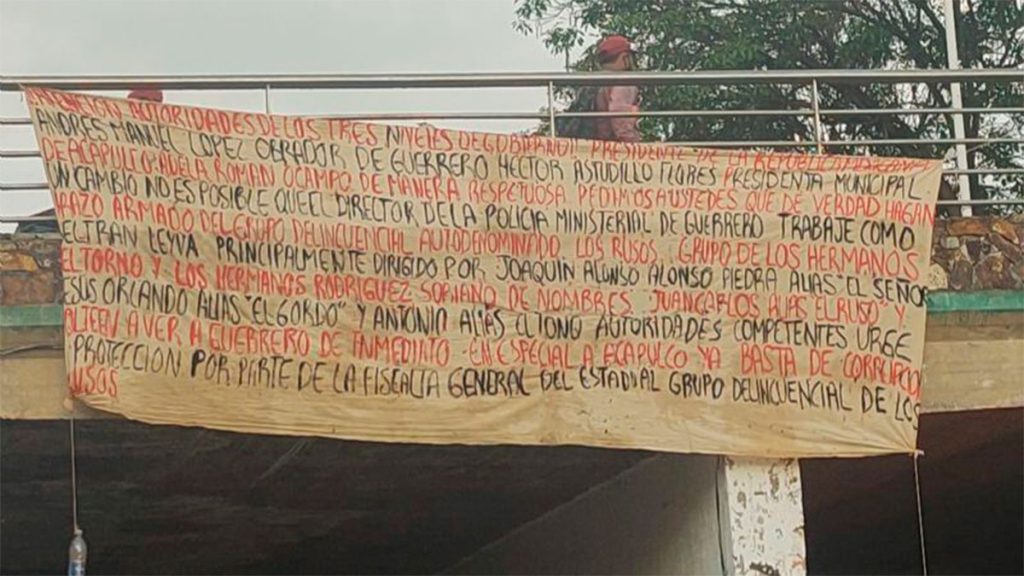 ATENCION AUTORIDADES DE LOS TRES NIVELES DE GOBIERNO!! PRESIDENTE DE LA REPUBLICA
ANDRES MANUEL LOPEZ OBRADOR DE GUERRERO HECTOR ASTUDILLO FLORES PRESIDENTA MUNICIPAL
DE ACAPULCO ADELA ROMAN OCAMPO DE MANERA RESPETUOSA PEDIMOS A USTEDES QUE DE VERDAD HAGAN
UN CAMBIO NO ES POSIBLE QUE EL DIRECTOR DE LA POLICIA MINISTERIAL DE GUERRERO TRABAJE COMO
BRAZO ARMADO DEL GRUPO DELINCUENCIAL AUTODENOMINADO LOS RUSOS. GRUPO DE LOS HERMANOS
BELTRAN LEYVA PRINCIPALMENTE DIRIGIDO POR JOAQUIN ALONSO ALONSO PIEDRA ALIAS EL SEÑOR
EL TORNO Y LOS HERMANOS RODRIGUEZ SORIANO DE NOMBRES. JUAN CARLOS ALIAS EL RUSO" Y
JESUS ORLANDO ALIAS "EL GORDO" Y ANTONIO ALIAS EL TONO AUTORIDADES COMPETENTES URGE
VOLTEEN A VER A GUERRERO DE INMEDIATO. EN ESPECIAL A ACAPULCO YA BASTA DE CORRUPCION
PROTECCION POR PARTE DE LA FISCALIA GENERAL DEL ESTADO AL GRUPO DELINCUENCIAL DE LOS
RUSOS